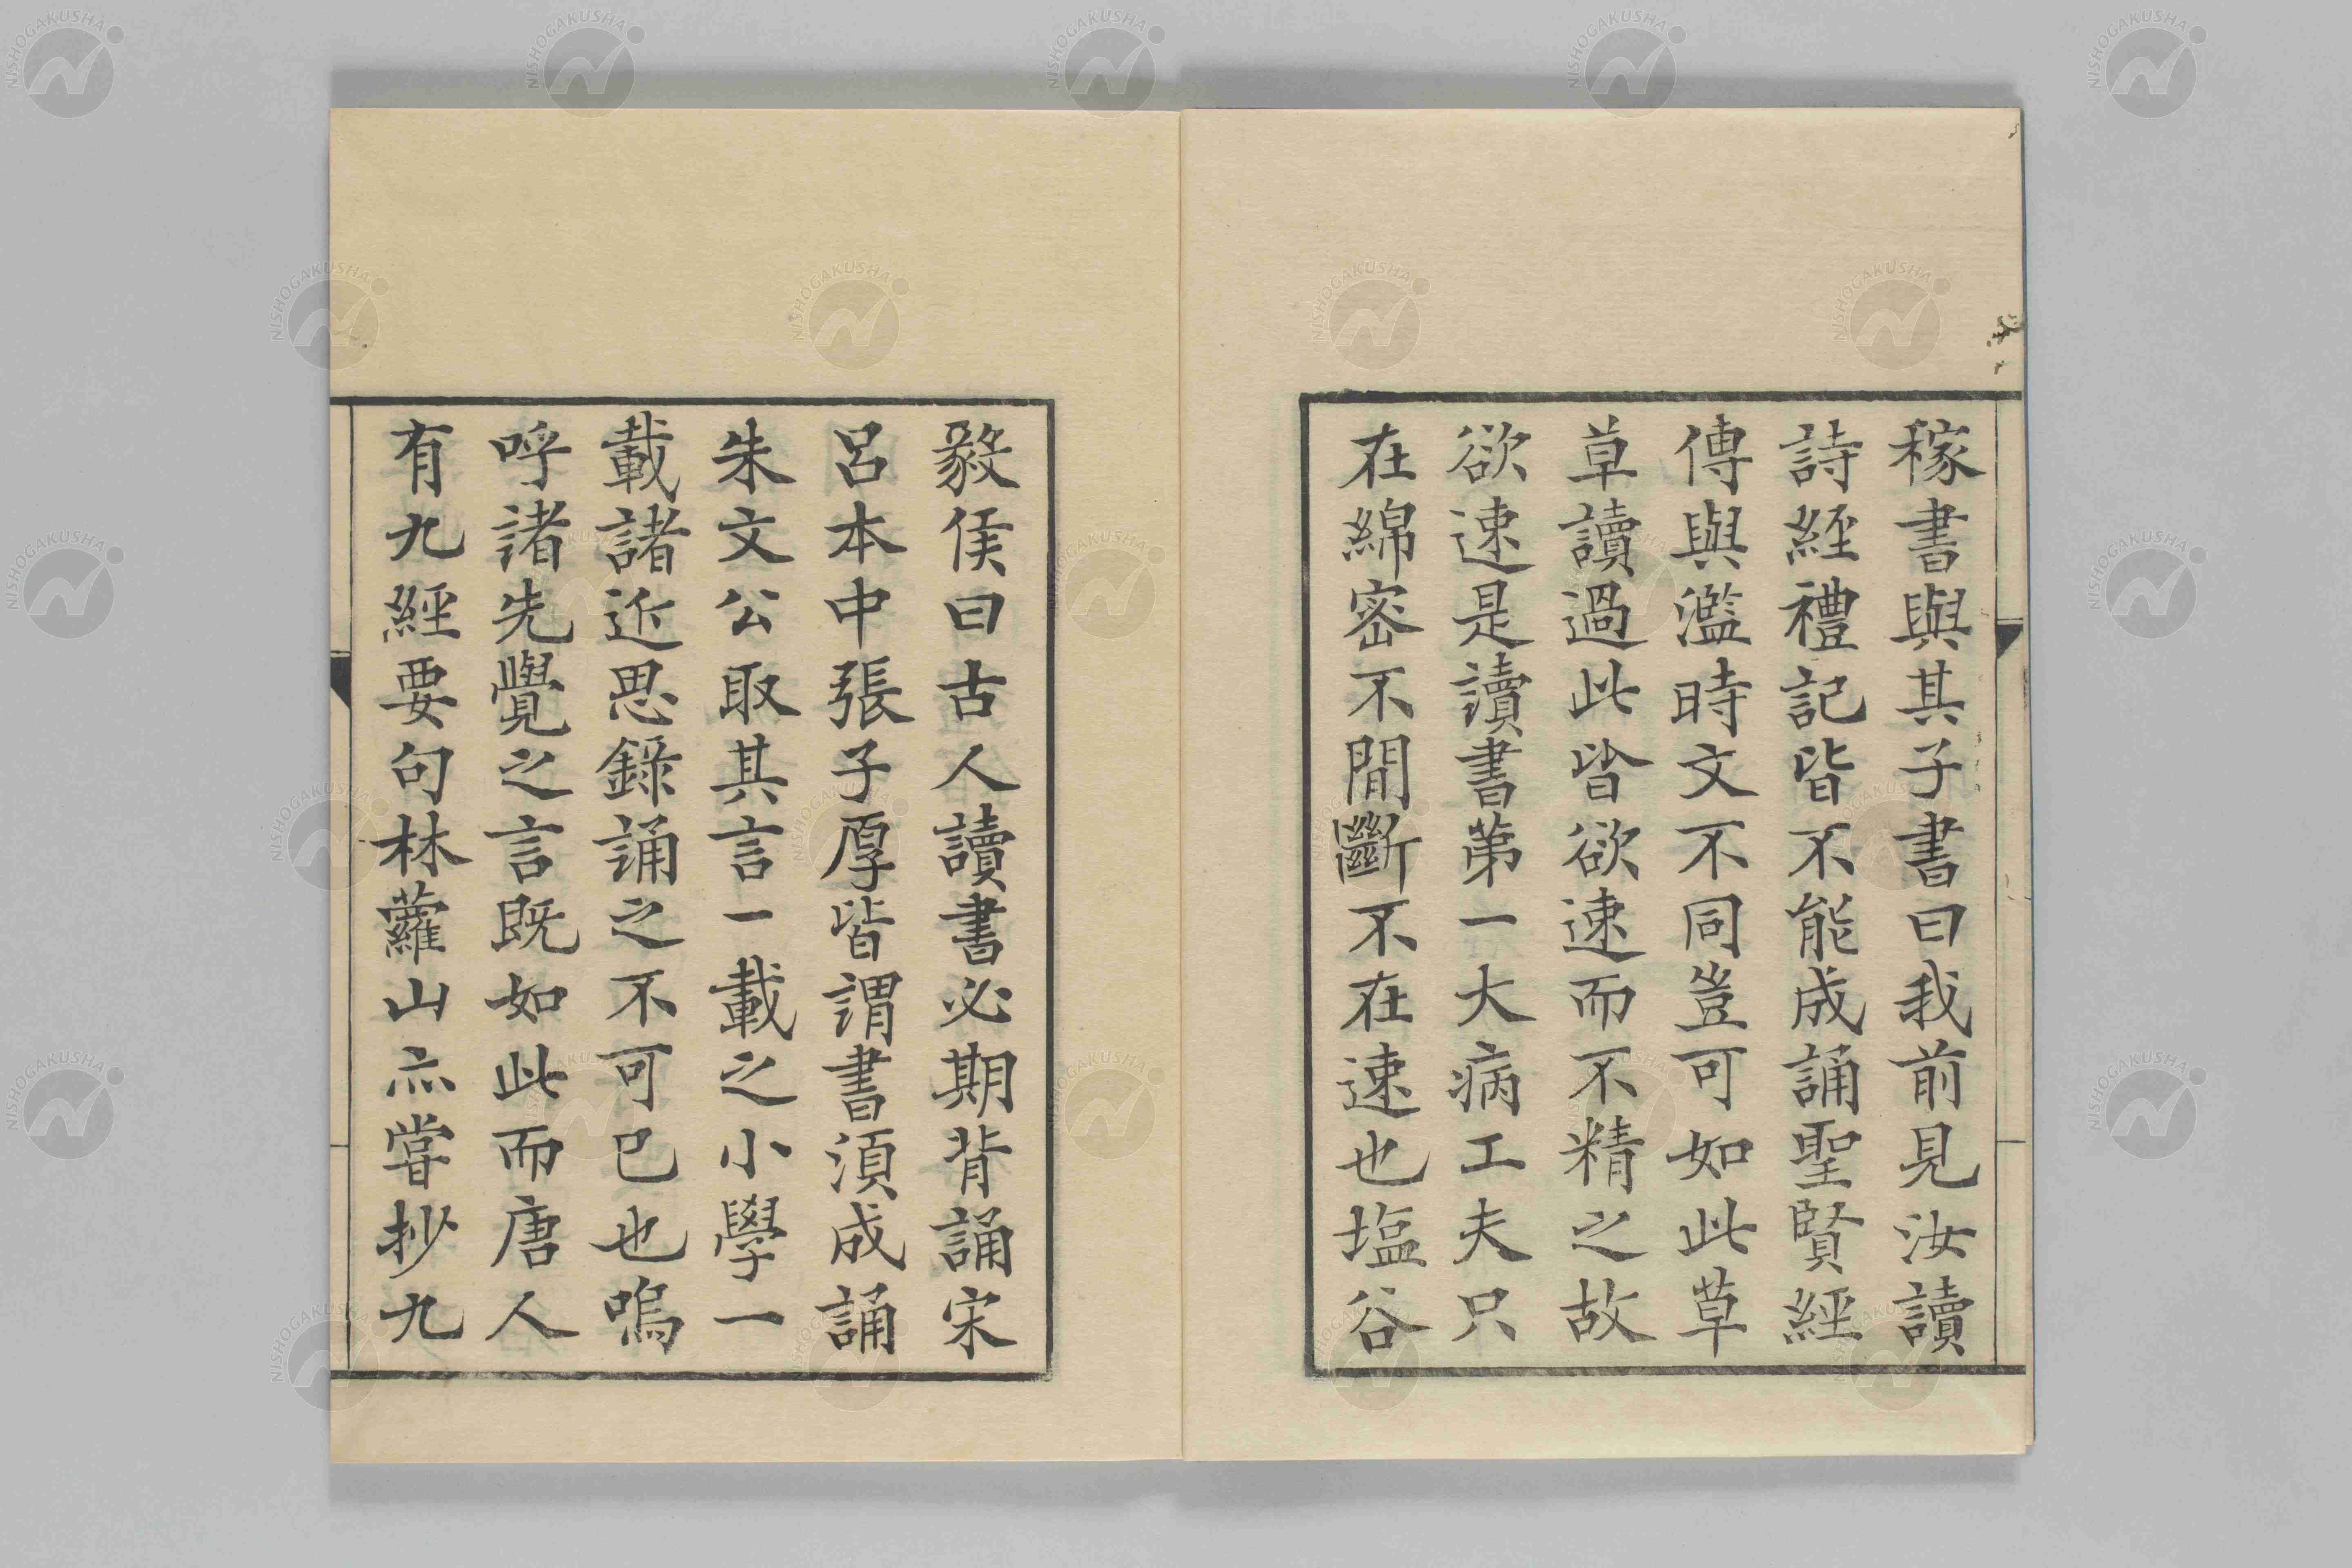 稼書與其子書曰我前見汝讀
詩經禮記皆不能成誦聖賢經
傳與濫時文不同豈可如此草
草讀過此皆欲速而不精之故
欲速是讀書第一大病工夫只
在綿密不間斷不在速也塩谷
毅侯曰古人讀書必期背誦宋
呂本中張子厚皆謂書須成誦
朱文公取其言一載之小學一
載諸近思錄誦之不可已也嗚
呼諸先覺之言既如此而唐人
有九經要句林蘿山亦嘗抄九
NISHOGAKUSHA